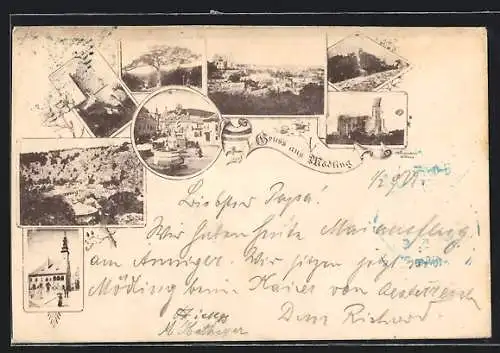 Gruss aus Mödling
Liebster Papa!
Wir haben heute Maiausflug
am Anninger. Wir sitzen jetzt in
Mödling beim Kaiser von Oesterreich
Dein Richard